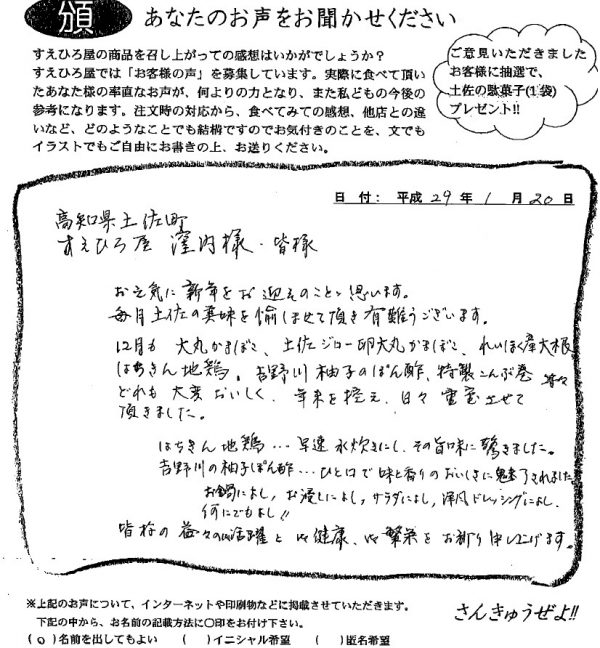 頒 あなたのお声をお聞かせください
すえひろ屋の商品を召し上がっての感想はいかがでしょうか？
すえひろ屋では「お客様の声」を募集しています。実際に食べて頂い
たあなた様の率直なお声が、何よりの力となり、また私どもの今後の
参考になります。注文時の対応から、食べてみての感想、他店との違
いなど、どのようなことでも結構ですのでお気付きのことを、文でも
イラストでもご自由にお書きの上、お送りください。
ご意見いただきました
お客様に抽選で、
土佐の駄菓子(1袋)
プレゼント!!
日 付： 平成 29 年 1 月 20 日
高知県土佐町
すえひろ屋 窪内様・皆様
お元気に新年をお迎えのことと思います。
毎月土佐の美味を愉しませて頂き有難うございます。
12月も 大丸かまぼこ、土佐ジロー卵大丸かまぼこ、れいほく産大根
はちきん地鶏、吉野川柚子のぽん酢、特製こんぶ巻 等々
どれも大変おいしく、年末を控え、日々重宝させて
頂きました。
はちきん地鶏…早速水炊きにし、その旨味に驚きました。
吉野川の柚子ぽん酢…ひと口で味と香りのおいしさに魅了されました
お鍋によし、お浸しによし、サラダによし、洋風ドレッシングによし、
何にでもよし!!
皆様の益々の御活躍と御健康、御繁栄をお祈り申し上げます。
※上記のお声について、インターネットや印刷物などに掲載させていただきます。
下記の中から、お名前の記載方法に〇印をお付け下さい。
(o)名前を出してもよい ( )イニシャル希望 ( )匿名希望
さんきゅうぜよ!!